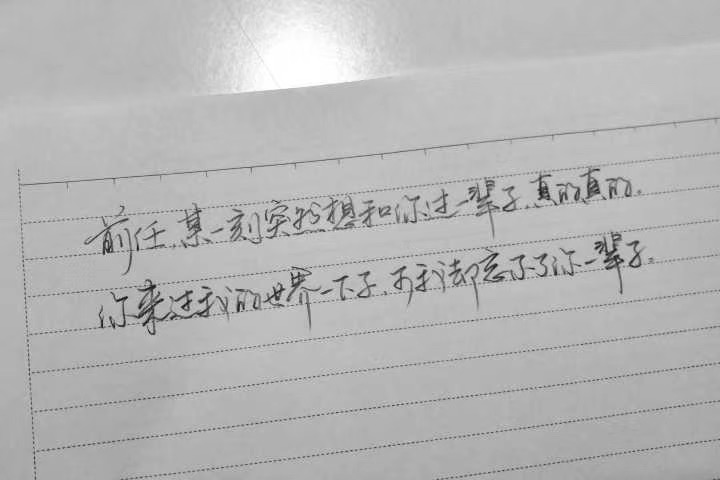 前任,某一刻突然想和你过一辈子,真的真的。
你来过我的世界一下子,可我却忘不了你一辈子。